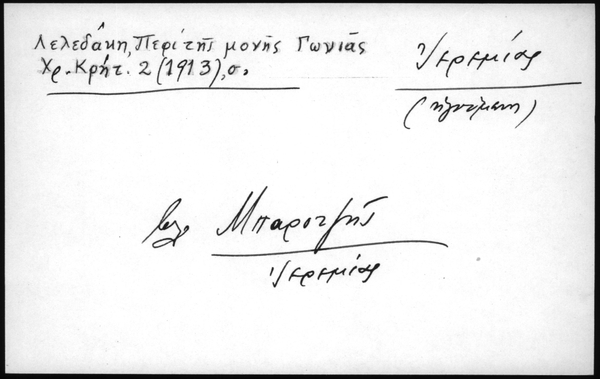 Λελεδάκη, Περί τῆς μονῆς Γωνιᾶς
Χρ. Κρήτ. 2 (1913), σ.
Ἱερεμίας
(ἡγούμενος)
βλ. Μπαροτζῆς
Ἱερεμίας